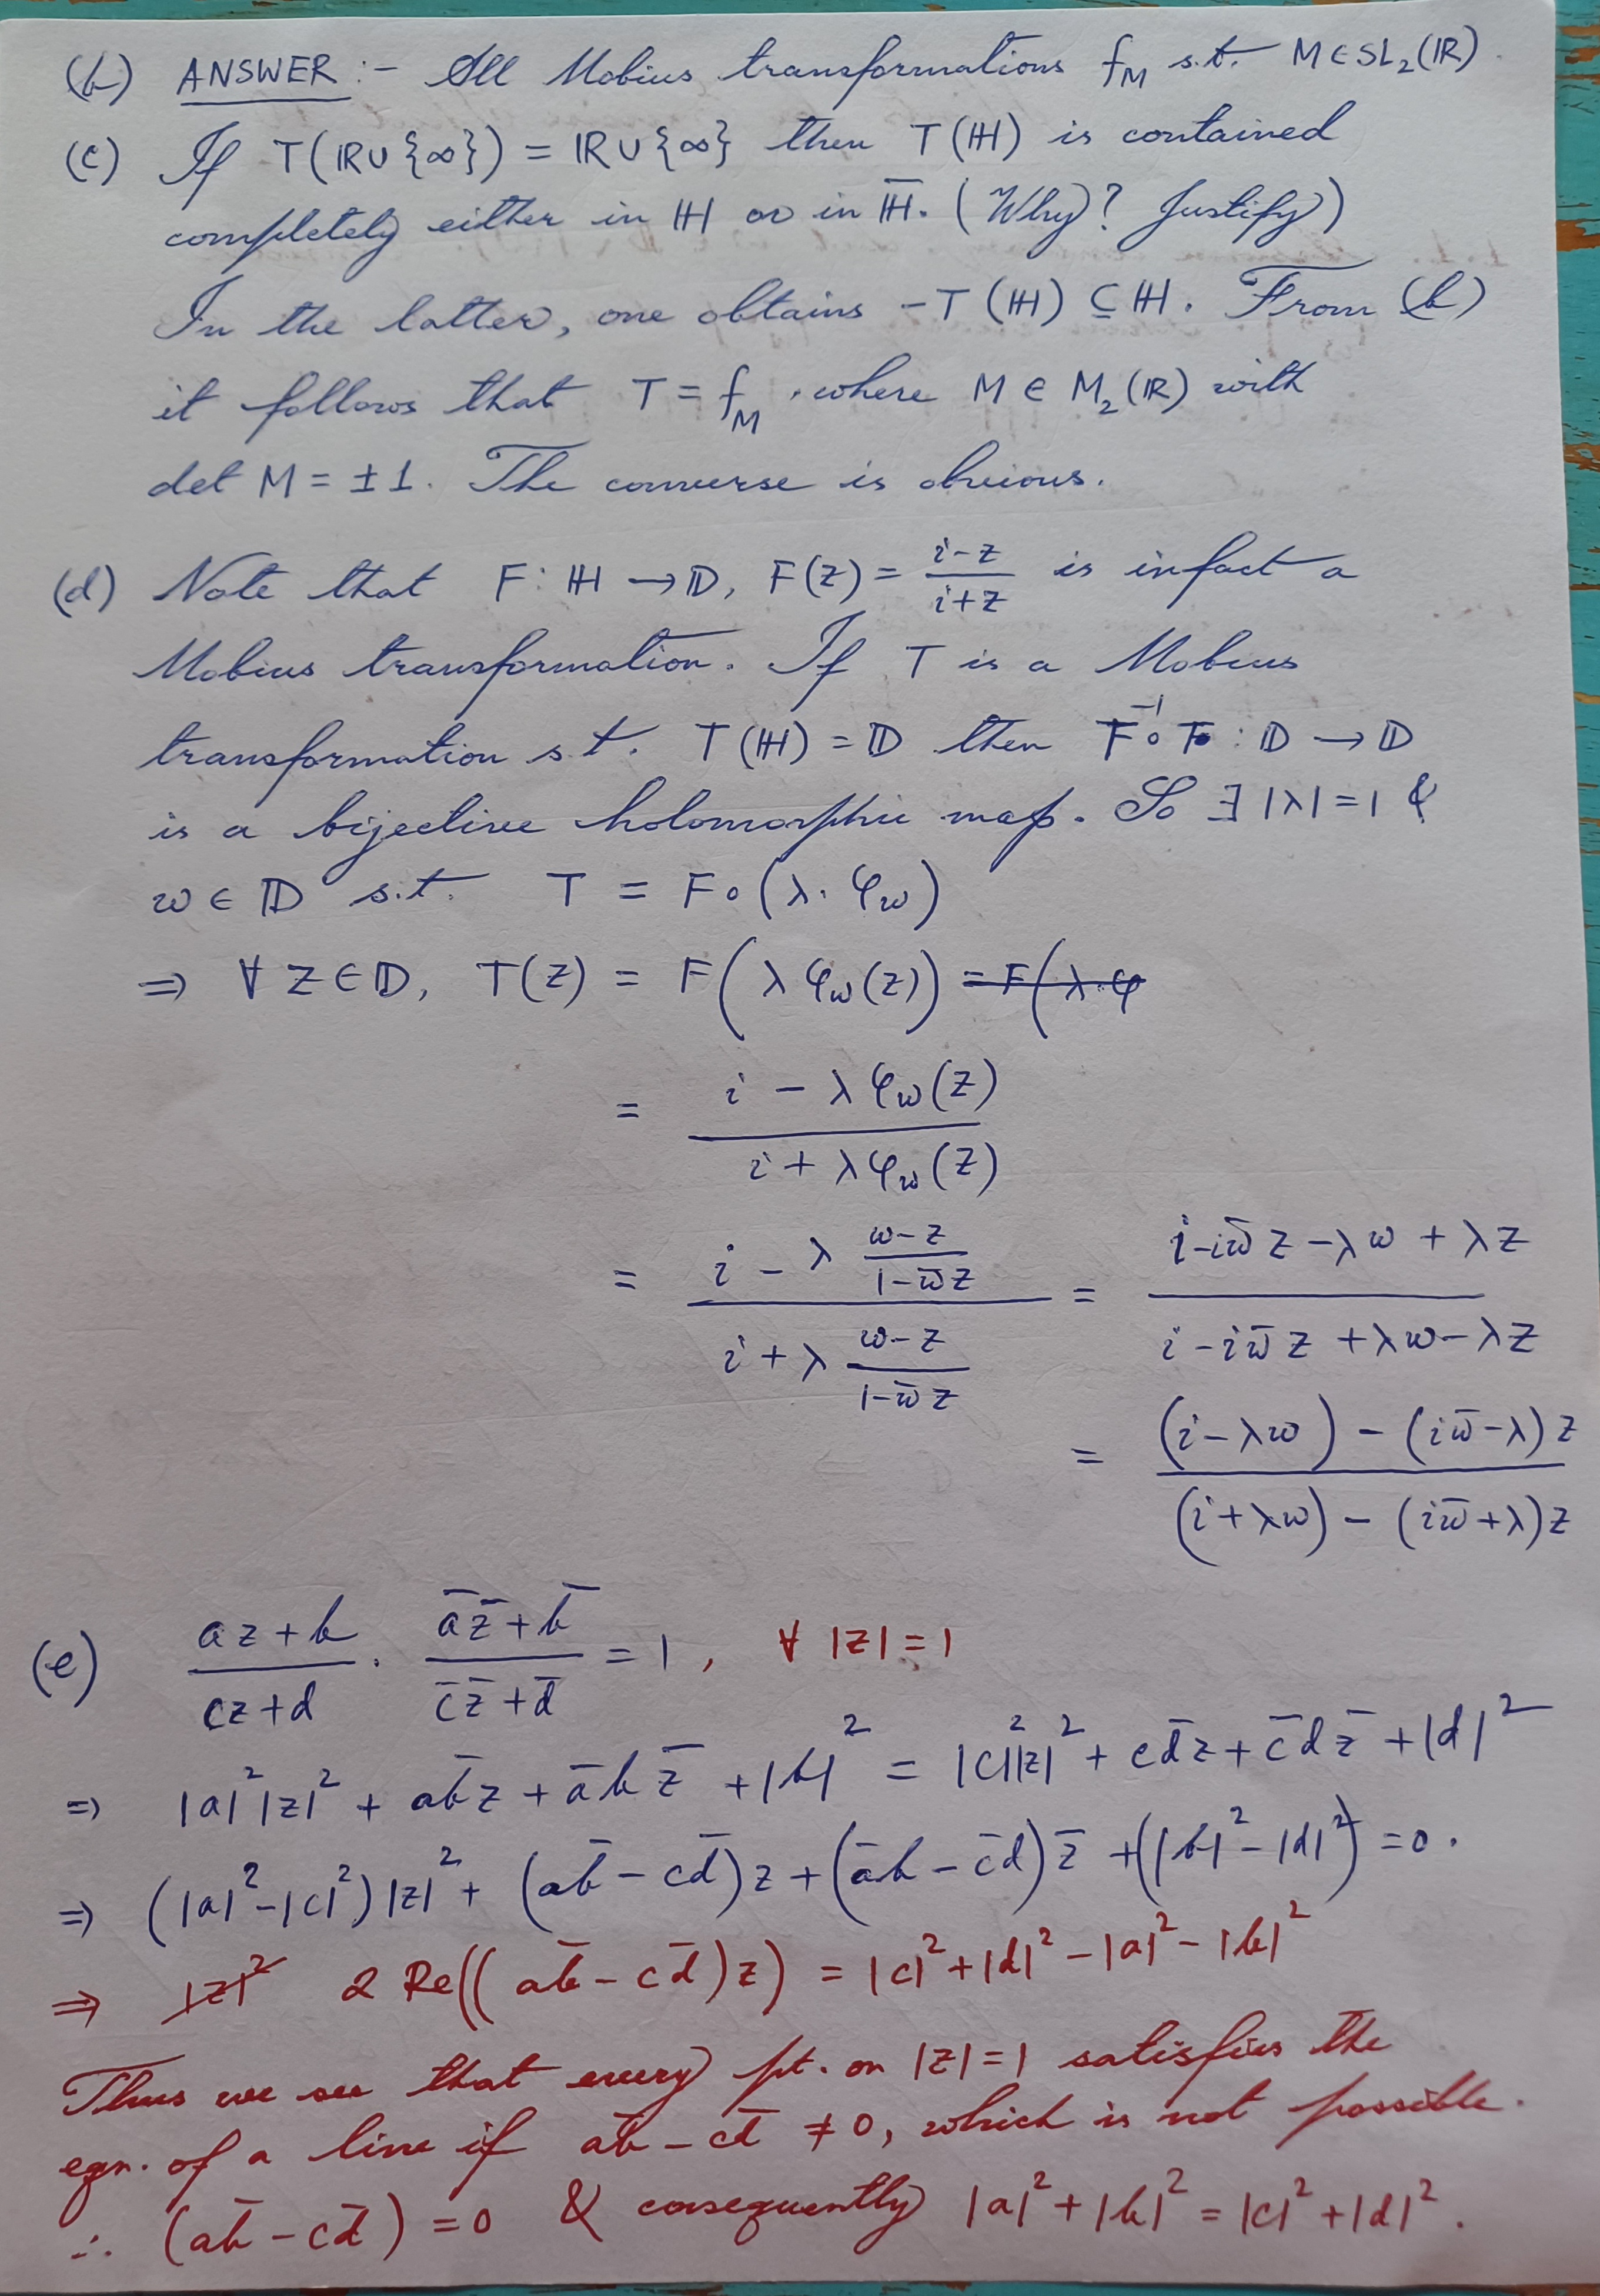 (b) ANSWER :- All Mobius transformations f_M s.t. M ∈ SL₂(ℝ).
(c) If T(ℝ∪{∞}) = ℝ∪{∞} then T(ℍ) is contained
completely either in ℍ or in ℍ̅. (Why? Justify)
In the latter, one obtains -T(ℍ) ⊆ ℍ. From (b)
it follows that T = f_M, where M ∈ M₂(ℝ) with
det M = ±1. The converse is obvious.
(d) Note that F: ℍ → 𝔻, F(z) = (i-z)/(i+z) is infact a
Mobius transformation. If T is a Mobius
transformation s.t. T(ℍ) = 𝔻 then F⁻¹∘T : 𝔻 → 𝔻
is a bijective holomorphic map. So ∃ |λ|=1 &
w ∈ 𝔻 s.t. T = F∘(λ·φ_w)
⇒ ∀ z∈𝔻, T(z) = F(λ φ_w(z)) = F(λ·φ
= (i - λφ_w(z))/(i + λφ_w(z))
= (i - λ (w-z)/(1-w̅z))/(i + λ (w-z)/(1-w̅z)) = (i-iw̅z-λw+λz)/(i-iw̅z+λw-λz)
= ((i-λw) - (iw̅-λ)z)/((i+λw) - (iw̅+λ)z)
(e) (az+b)/(cz+d) · (a̅z̅+b̅)/(c̅z̅+d̅) = 1, ∀ |z|=1
⇒ |a|²|z|² + ab̅z + a̅bz̅ + |b|² = |c|²|z|² + cd̅z + c̅dz̅ + |d|²
⇒ (|a|²-|c|²)|z|² + (ab̅-cd̅)z + (a̅b-c̅d)z̅ + (|b|²-|d|²) = 0.
⇒ |z|² 2 Re((ab̅-cd̅)z) = |c|²+|d|²-|a|²-|b|²
Thus we see that every pt. on |z|=1 satisfies the
eqn. of a line if ab̅-cd̅ ≠ 0, which is not possible.
∴ (ab̅-cd̅) = 0 & consequently |a|²+|b|² = |c|²+|d|².